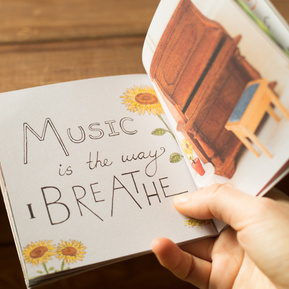 MUSIC
is the way
I BREATHE